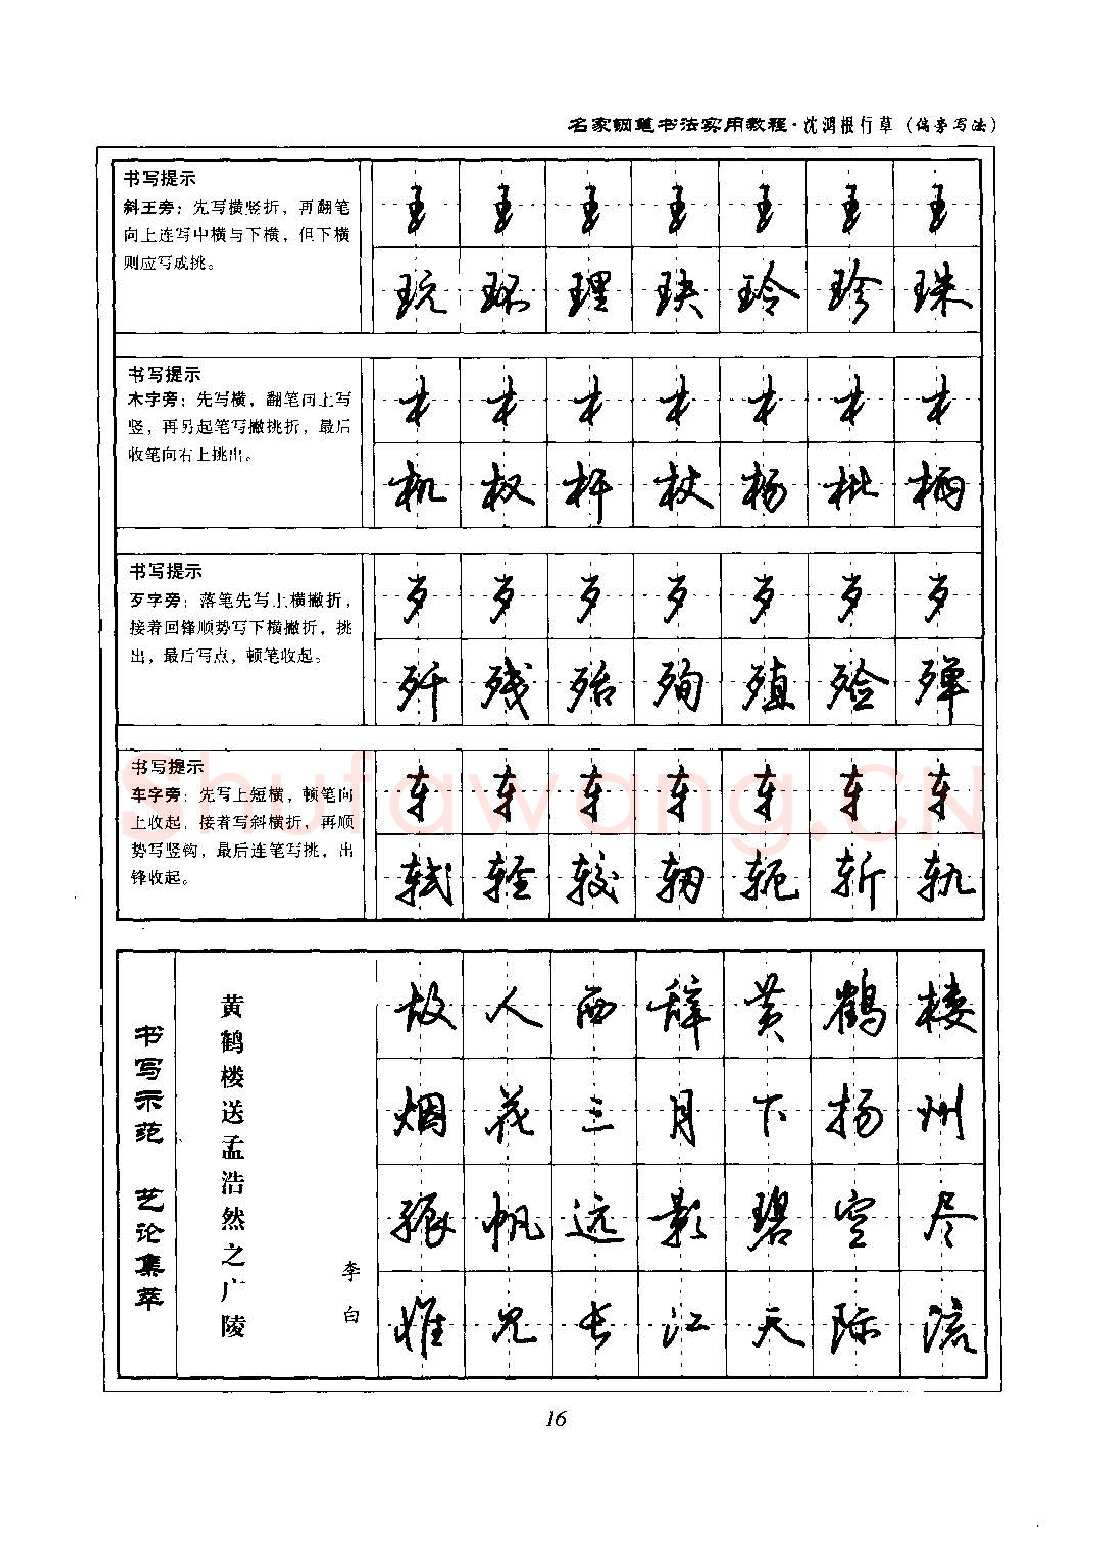 名家钢笔书法实用教程·沈鸿根行草(偏旁写法)
书写提示
斜王旁：先写横竖折，再翻笔
向上连写中横与下横，但下横
则应写成挑。
王 王 王 王 王 王 王
玩 理 玦 玲 珍 珠
书写提示
木字旁：先写横，翻笔向上写
竖，再另起笔写撇挑折，最后
收笔向右上挑出。
木 木 木 木 木 木 木
机 权 杆 杖 杨 枇 柄
书写提示
歹字旁：落笔先写上横撇折，
接着回锋顺势写下横撇折，挑
出，最后写点，顿笔收起。
歹 歹 歹 歹 歹 歹 歹
歼 残 殆 殉 殖 殓 殚
书写提示
车字旁：先写上短横，顿笔向
上收起，接着写斜横折，再顺
势写竖钩，最后连笔写挑，出
锋收起。
车 车 车 车 车 车 车
轼 轻 较 轫 轭 斩 轨
Shufawang.CN
书写示范 艺论集萃
黄鹤楼送孟浩然之广陵
李白
故人西辞黄鹤楼
烟花三月下扬州
孤帆远影碧空尽
惟见长江天际流
16